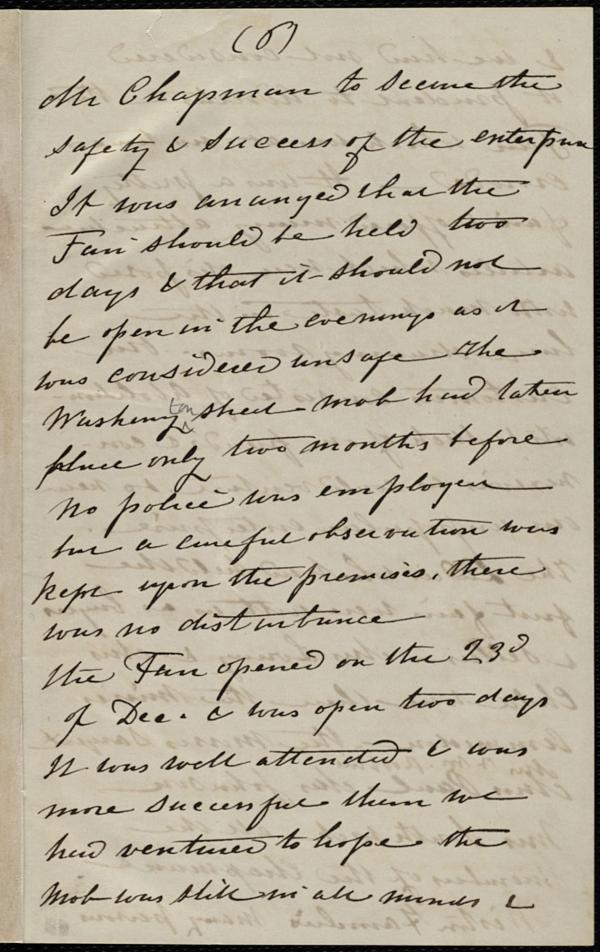 (6)
Mr Chapman to secure the
safety & success of the enterprise
It was arranged that the
Fair should be held two
days & that it should not
be open in the evenings as it
was considered unsafe the
Washington street mob had taken
place only two months before
No police was employed
but a careful observation was
kept upon the premises, there
was no disturbance
the Fair opened on the 23d
of Dec. & was open two days
It was well attended & was
more successful than we
had ventured to hope the
mob was still in all minds &